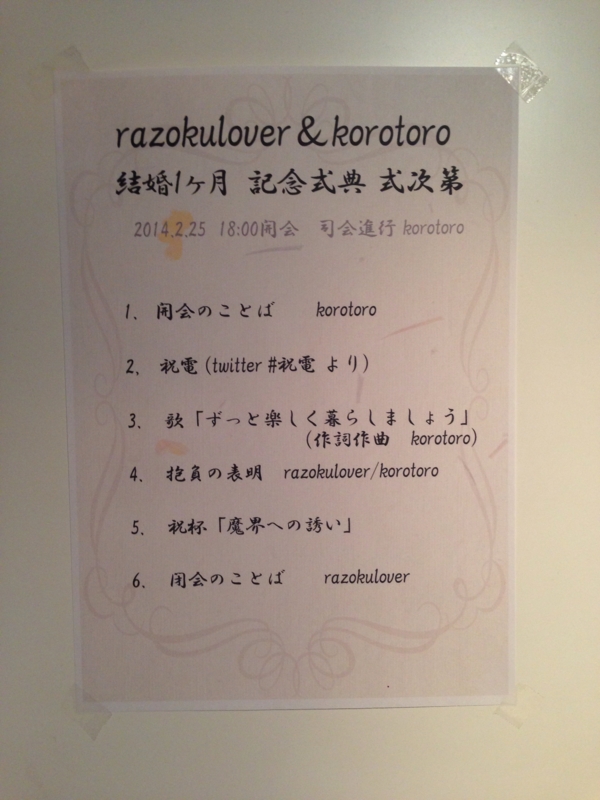 razokulover & korotoro
結婚1ヶ月 記念式典 式次第
2014.2.25 18:00開会 司会進行 korotoro
1. 開会のことば korotoro
2. 祝電 (twitter #祝電 より)
3. 歌「ずっと楽しく暮らしましょう」
(作詞作曲 korotoro)
4. 抱負の表明 razokulover/korotoro
5. 祝杯「魔界への誘い」
6. 閉会のことば razokulover